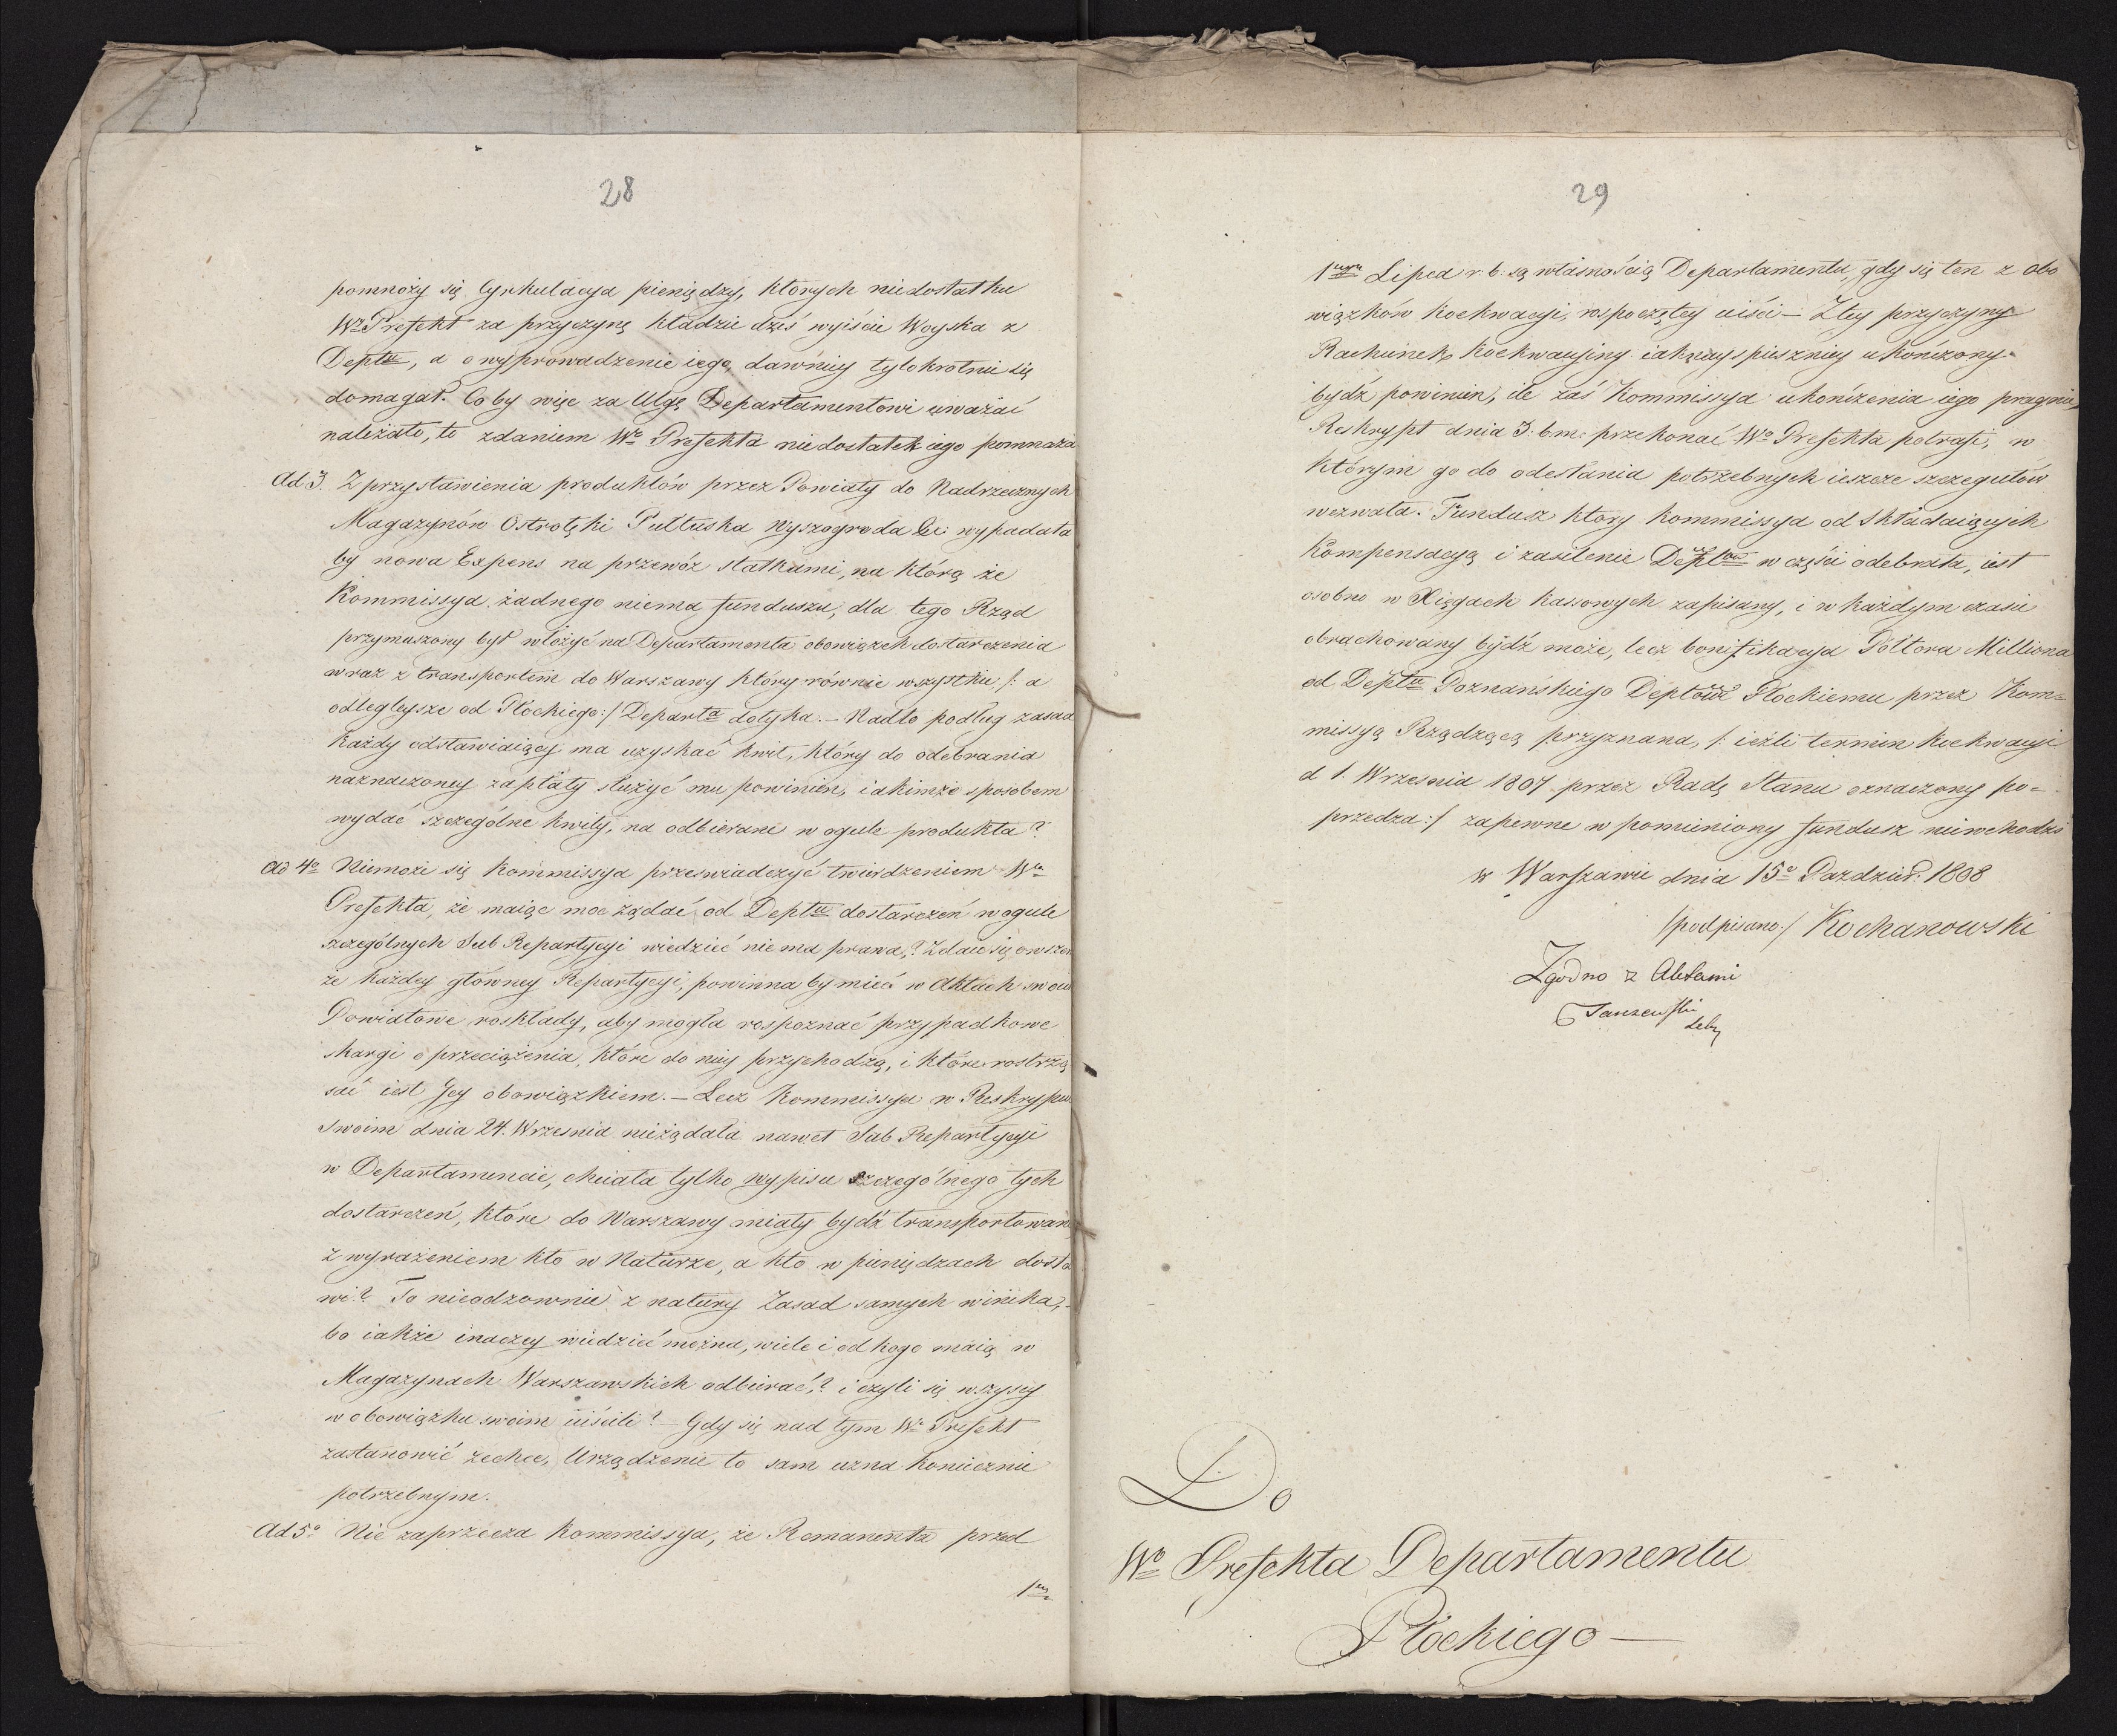 28
pomnoży się Cyrkulacya pieniędzy, których niedostatku
Wny Prefekt za przyczynę kładzie dziś wyiście Woyska z
Deptu, a o wyprowadzenie iego, dawniey tylokrotnie się
domagał. Coby więc za Ulgę Departamentowi uważać
należało, to zdaniem Wo Prefekta niedostatek iego pomnaża
Ad 3. Z przystawienia produktów przez Powiaty do Nadrzecznych
Magazynów Ostrołęki Pułtuska Wyszogroda &c: wypadała
by nowa Expens na przewóz statkami, na którą że
Kommissya żadnego niema funduszu, dla tego Rząd
przymuszony był włożyć na Departamenta obowiązek dostarczenia
wraz z transportem do Warszawy który równie wszystkie /: a
odlegleysze od Płockiego :/ Departa dotyka. – Nadto podług zasad
każdy odstawiaiący ma uzyskać kwit, który do odebrania
naznaczoney zapłaty służyć mu powinien, iakimże sposobem
wydać szczególne kwity, na odbierane w ogule produkta?
Ad 4o Niemoże się Kommissya przeswiadczyć twierdzeniem Wo
Prefekta, że maiąc moc żądać od Deptu dostarczeń w ogule
szczególnych Sub Repartycyi wiedzieć nie ma prawa,? Zdaie się owszem
że każdey głowney Repartycyi, powinna by mieć w Aktach swoich
Powiatowe rozkłady, aby mogła rospoznać przypadkowe
skargi o przeciążenia, które do niey przychodzą, i które rostrzą
sać iest Jey obowiązkiem. – Lecz Kommissya w Reskrypcie
swoim dnia 24. Wrzesnia nieżądała nawet Sub Repartycyi
w Departamencie, chciała tylko wypisu szczególnego tych
dostarczeń, które do Warszawy miały bydź transportowane
z wyrażeniem kto w Naturze, a kto w pieniędzach dosta
wi? To nieodzownie z natury Zasad samych winika,
bo iakże inaczey wiedzieć można, wiele i od kogo maią w
Magazynach Warszawskich odbierać,? i czyli się wszyscy
w obowiązku swoim uiścili? – Gdy się nad tym Wny Prefekt
zastanowić zechce, Urządzenie to sam uzna koniecznie
potrzebnym.
Ad 5o Nie zaprzecza Kommissya, że Remanenta przed
29
1wszym Lipca r: b: są własnością Departamentu, gdy się ten z obo
wiązków Koekwacyi, rospoczętey uiści – Z tey przyczyny
Rachunek Koekwacyiny iaknayspieszniey ukończony
bydź powinien, ile zaś Kommissya ukończenia iego pragnie,
Reskrypt dnia 3. b. m: przekonać Wo Prefekta potrafi, w
którym go do odesłania potrzebnych ieszcze szczegułów
wezwała. Fundusz ktory Kommissya od Składaiących
Kompensacyą i zasilenie Deptow w części odebrała, iest
osobno w Xięgach Kassowych zapisany, i w każdym czasie
obrachowany bydź może, lecz bonifikacya Półtora Milliona
od Deptu Poznańskiego Deptowi Płockiemu przez Kom=
missyą Rządzącą przyznana, /: ieżli termin Koekwacyi
d 1. Wrzesnia 1807 przez Radę Stanu oznaczony po=
przedza :/ zapewne w pomieniony fundusz niewchodzi
w Warszawie dnia 15o Pazdzier: 1808
/podpisano/ Kochanowski
Zgodno z Aktami
Do
Wo Prefekta Departamentu
Płockiego –